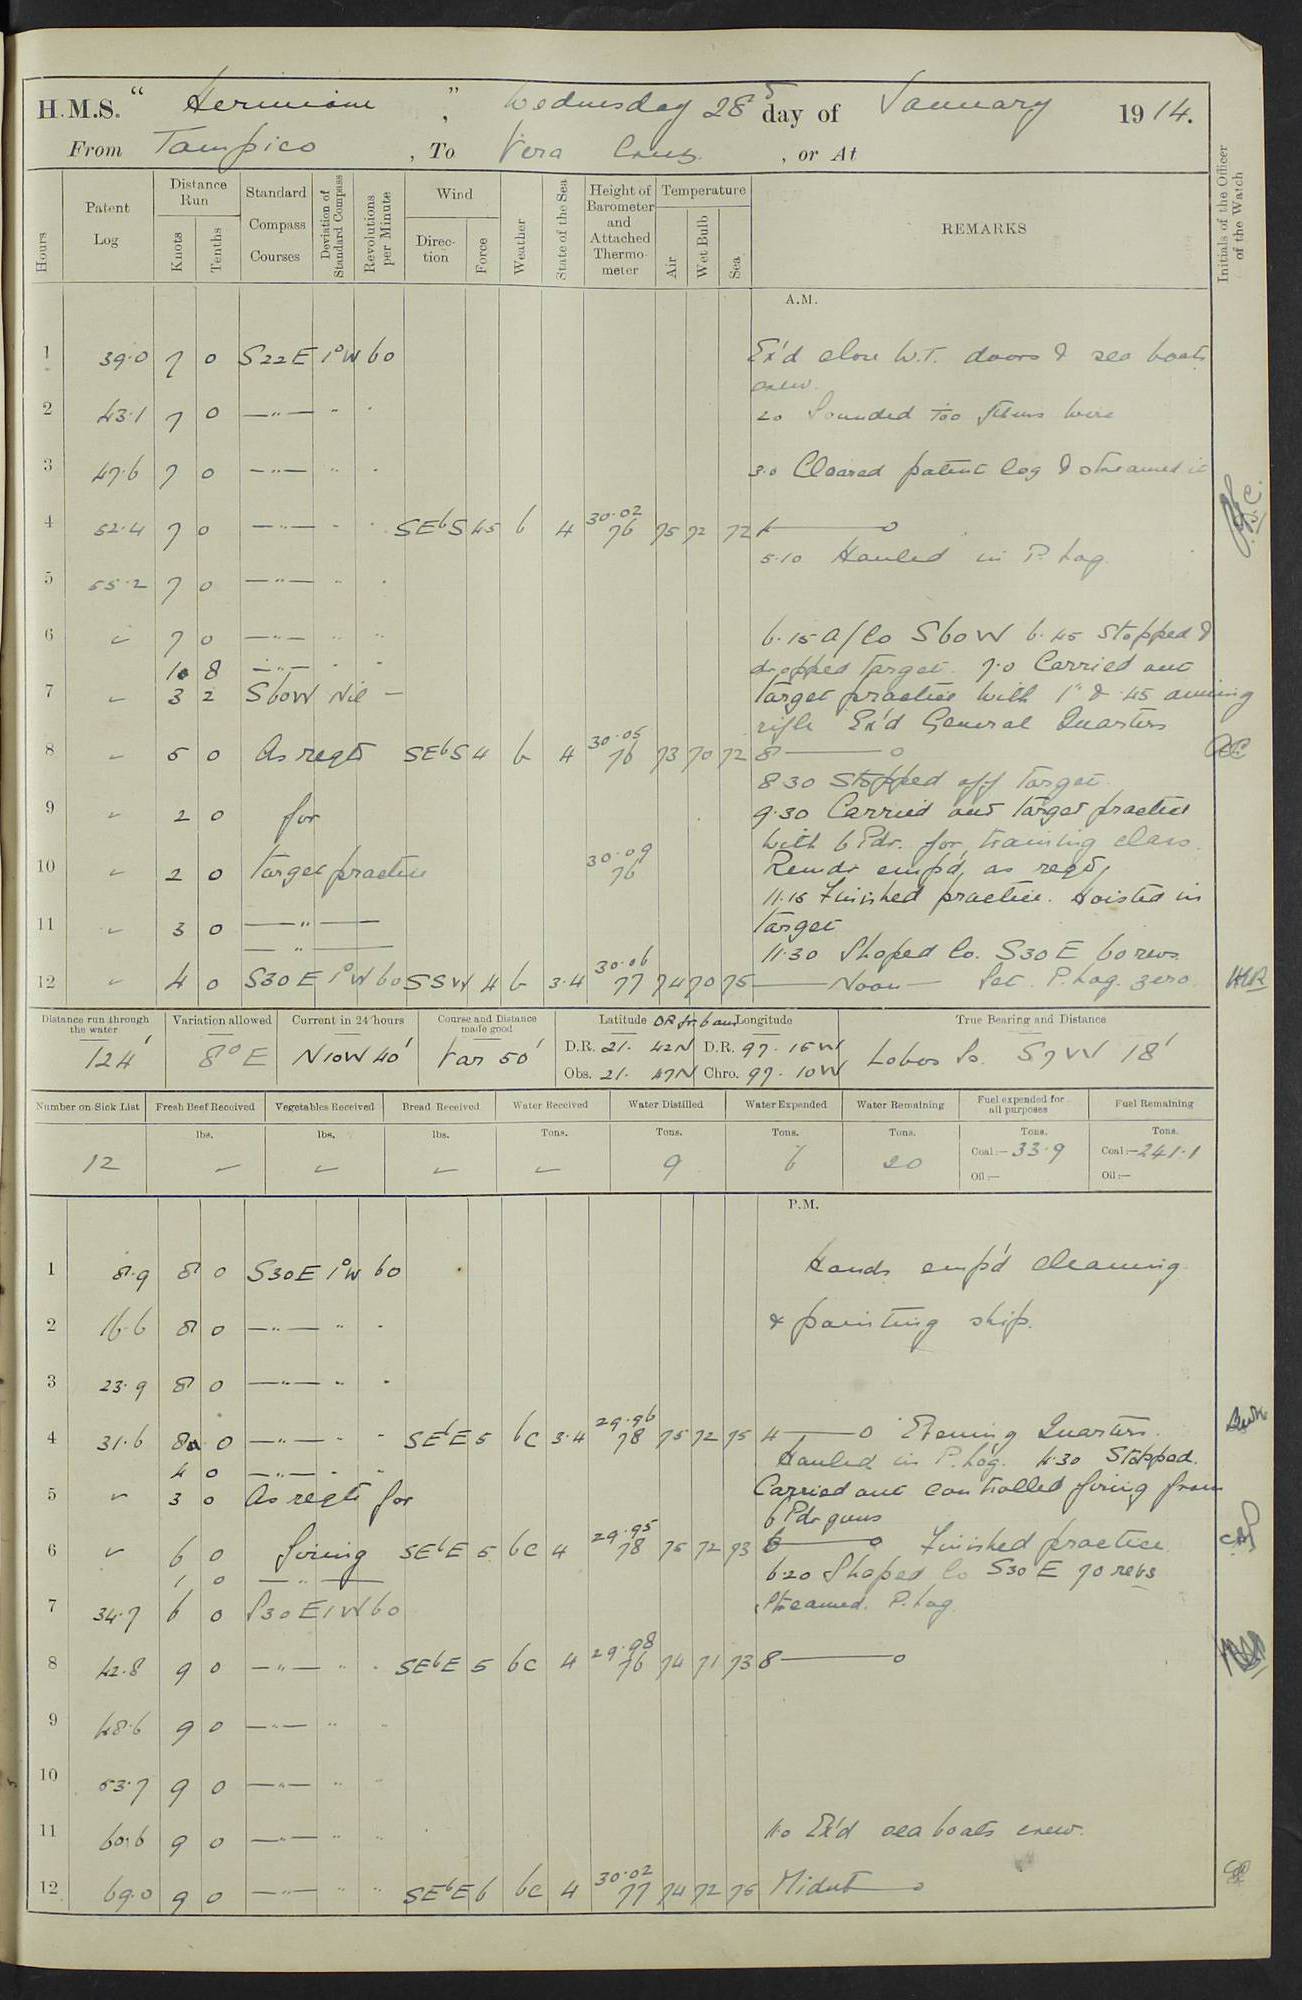 H.M.S. " Hermione ", Wednesday 28th day of January 1914.
From Tampico, To Vera Cruz, or At
Hours
Patent Log
Distance Run
Knots
Tenths
Standard Compass Courses
Deviation of Standard Compass
Revolutions per Minute
Wind
Direction
Force
Weather
State of the Sea
Height of Barometer and Attached Thermometer
Temperature
Air
Wet Bulb
Sea
REMARKS
Initials of the Officer of the Watch
A.M.
1 39.0 7 0 S22E 1°W 60 Ex'd close W.T. doors & sea boats
crew.
2 43.1 7 0 —"— " " 20 Sounded 100 fthms wire
3 47.6 7 0 —"— " " 3.0 Cleared patent log & streamed it
4 52.4 7 0 —"— " " SEbS 4.5 b 4 30.02 76 75 72 72 4 ——— o
5.10 Hauled in P. Log.
5 55.2 7 0 —"— " "
6 ✓ 7 0 —"— " " 6.15 A/Co S60W 6.45 Stopped &
1 8 —"— " " dropped target. 7.0 Carried out
7 ✓ 3 2 S60W Nil — target practice with 1" & .45 aiming
rifle Ex'd General Quarters
8 ✓ 5 0 As reqd SEbS 4 b 4 30.05 76 73 70 72 8 ——— o
8.30 Stopped off target.
9 ✓ 2 0 for 9.30 Carried out target practice
with 6 Pdr. for training class.
10 ✓ 2 0 target practice 30.09 76 Remdr emp'd, as reqd,
11.15 Finished practice. Hoisted in
11 ✓ 3 0 ——"—— target
——"—— 11.30 Shaped Co. S30E 60 revs.
12 ✓ 4 0 S30E 1°W 60 SSW 4 b 3.4 30.06 77 74 70 75 —— Noon — Set P. Log. zero.
Distance run through the water 124'
Variation allowed 8°E
Current in 24 hours N10W 40'
Course and Distance made good Var 50'
Latitude DR fr 6 am Longitude
D.R. 21. 42N D.R. 97. 15W
Obs. 21. 47N Chro. 97. 10W
True Bearing and Distance Lobos Is. S7W 18'
Number on Sick List 12
Fresh Beef Received lbs. ✓
Vegetables Received lbs. ✓
Bread Received lbs. ✓
Water Received Tons. ✓
Water Distilled Tons. 9
Water Expended Tons. 6
Water Remaining Tons. 20
Fuel expended for all purposes Tons. Coal:— 33.9 Oil:—
Fuel Remaining Tons. Coal:— 241.1 Oil:—
P.M.
1 8.9 8 0 S30E 1°W 60 Hands emp'd cleaning
2 16.6 8 0 —"— " " & painting ship.
3 23.9 8 0 —"— " "
4 31.6 8 0 —"— " " SEbE 5 bc 3.4 29.96 78 75 72 75 4 ——— o Evening Quarters.
4 0 —"— " " Hauled in P. Log. 4.30 Stopped.
5 ✓ 3 0 As reqd for Carried out controlled firing from
6 Pdr guns
6 ✓ 6 0 firing SEbE 5 bc 4 29.95 78 75 72 73 6 ——— o Finished practice.
1 0 ——"—— 6.20 Shaped Co S30E 70 revs
7 34.7 6 0 S30E 1W 60 Streamed P. Log.
8 42.8 9 0 —"— " " SEbE 5 bc 4 29.98 76 74 71 73 8 ——— o
9 48.6 9 0 —"— " "
10 53.7 9 0 —"— " "
11 60.6 9 0 —"— " " 11.0 Ex'd sea boats crew.
12 69.0 9 0 —"— " " SEbE 6 bc 4 30.02 77 74 72 75 Midnt ——— o